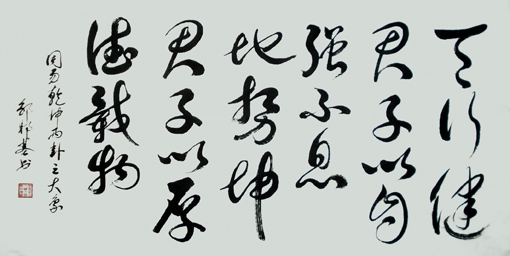 天行健
君子以自
強不息
地势坤
君子以厚
德載物
周易乾坤两卦之大象